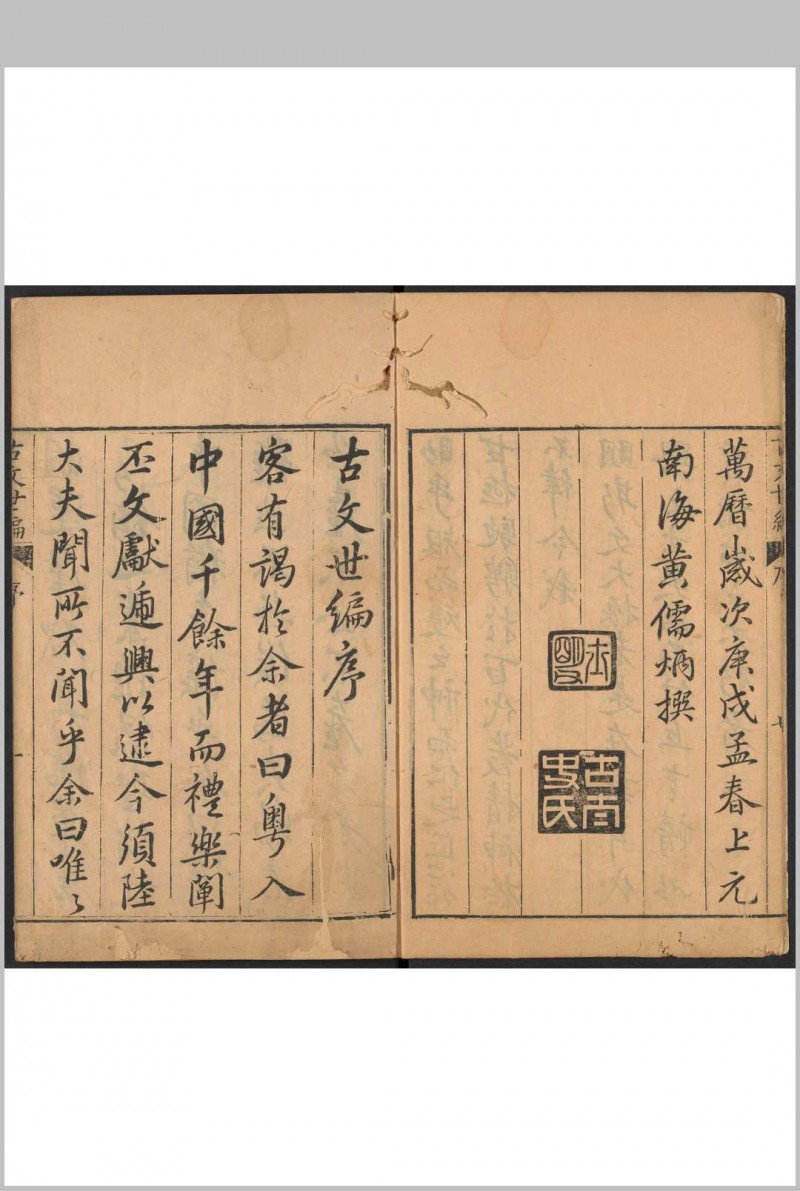 萬曆歲次庚戌孟春上元
南海黃儒炳撰
古文世編序
客有謁於余者曰粵入
中國千餘年而禮樂闡
丕文獻遞興以逮今須陸
大夫聞所不聞乎余曰唯〻
古文世編
序